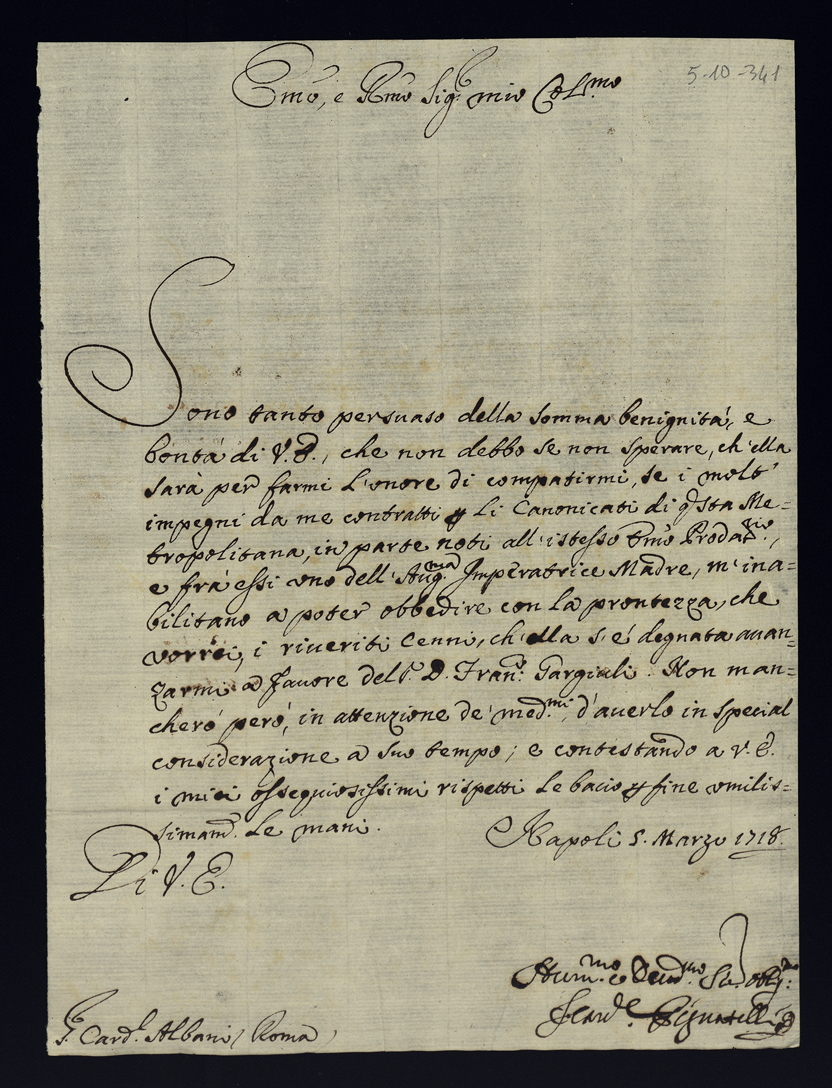 5-10-341
Emo, e Rmo Sig.r mio Col.mo
Sono tanto persuaso della somma benignità, e
bontà di V.E., che non debbo se non sperare, ch'ella
sarà per farmi l'onore di compatirmi, se i molt'
impegni da me contratti p li Canonicati di qsta Me=
tropolitana, in parte noti all'istesso Emo Prodat.rio,
e frà essi uno dell'Aug.ma Imperatrice Madre, m'ina=
bilitano a poter obbedire con la prontezza, che
vorrei, i riveriti Cenni, ch'ella s'è degnata avan=
zarmi a favore del S. D. Fran.co Gargiuli. Non man=
cherò però, in attenzione de' med.mi, d'averlo in special
considerazione a suo tempo; e contestando a V.E.
i miei ossequiosissimi rispetti le bacio p fine umilis=
simam.e le mani. Napoli 5. Marzo 1718.
Di V.E.
Hum.mo e Deud.mo Se. obl.mo
F. Card.le Pignatelli
S.r Card.l Albani / Roma /